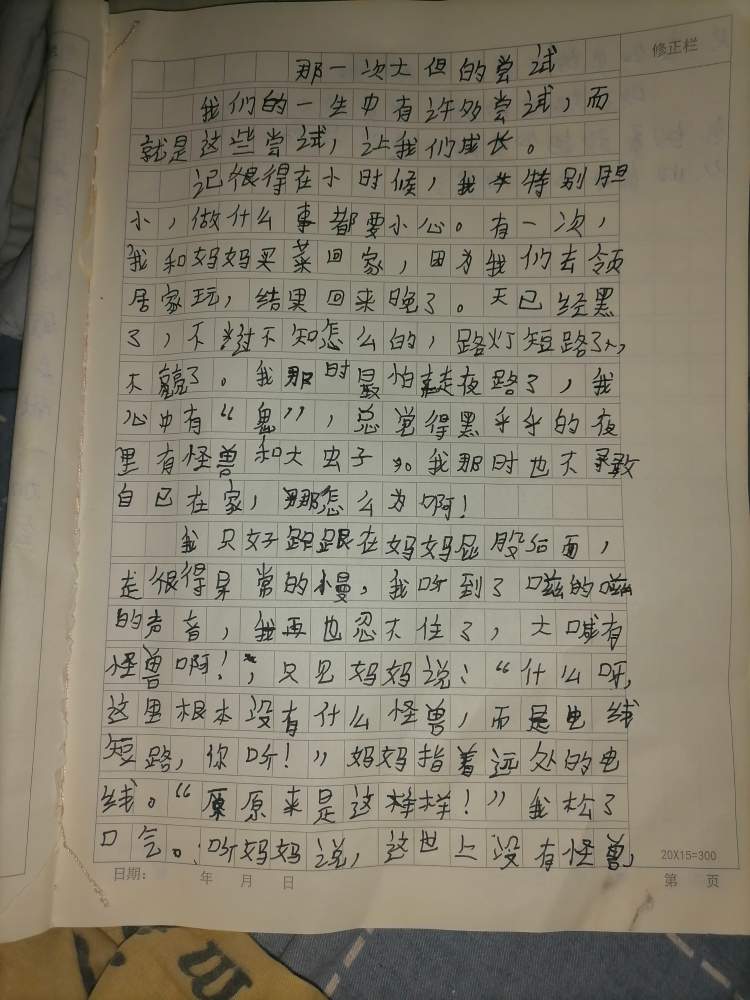 修正栏
那一次大但的尝试
我们的一生中有许多尝试，而
就是这些尝试，让我们成长。
记很得在小时候，我特别胆
小，做什么事都要小心。有一次，
我和妈妈买菜回家，因为我们去领
居家玩，结果回来晚了。天已经黑
了，不过不知怎么的，路灯短路了，
不亮了。我那时最怕走夜路了，我
心中有“鬼”，总觉得黑乎乎的夜
里有怪兽和大虫子。我那时也不敢
自已在家，那怎么为啊！
我只好跟在妈妈屁股后面，
走很得异常的慢，我听到了嗞的嗞
的声音，我再也忍不住了，大喊有
怪兽啊！，只见妈妈说：“什么呀，
这里根本没有什么怪兽，而是电线
短路，你听！”妈妈指着远处的电
线。“原原来是这样样！”我松了
口气。听妈妈说，这世上没有怪兽，
20X15=300
日期： 年 月 日 第 页